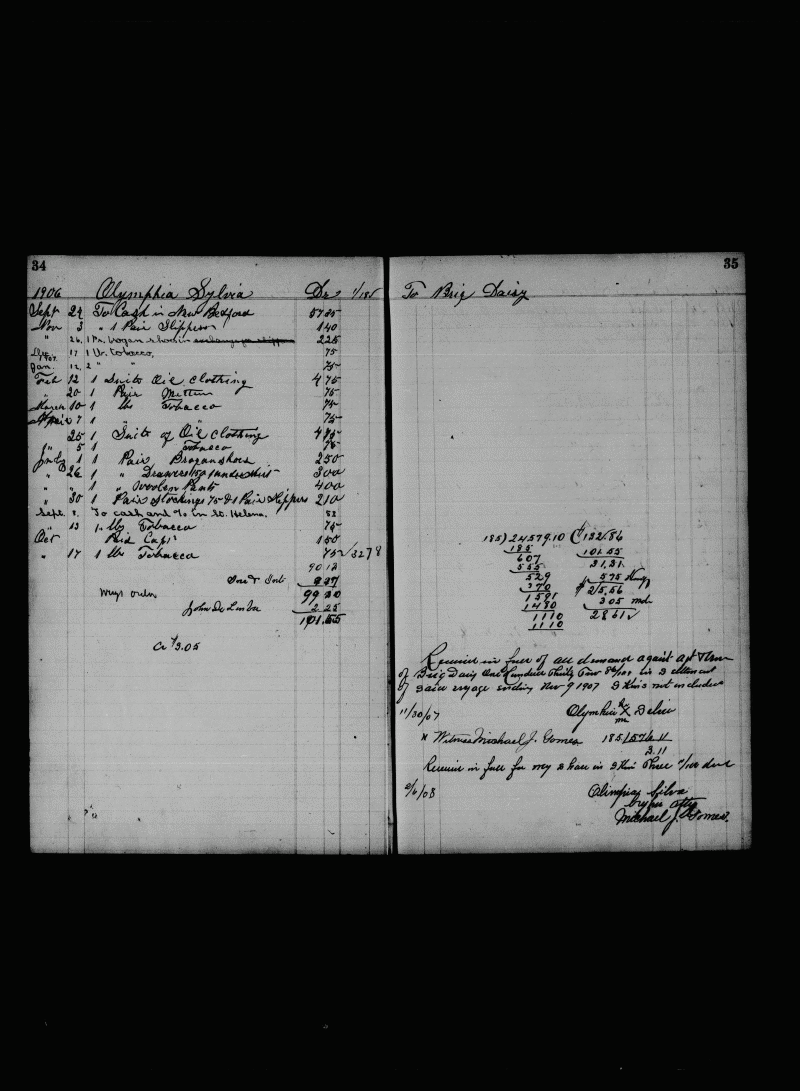 34
1906 Olymphia Sylvia Dr 1/185
Sept 29 To Cash in New Bedford 5735
Nov 3 " 1 Pair Slippers 140
" 26, 1 Pr. brogan shoes in 225
Dec 17 1 Lb. tobacco, 75
1907.
Jan. 12, 2 " " 75
Feb 12 1 Suit Oil Clothing 475
" 20 1 Pair Mittens 75
March 10 1 lb Tobacco 75
April 7 1 " " 75
25 1 Suit of Oil Clothing 475
" 5 1 Tobacco 75
July 1 1 Pair Broganshoes 250
" 26 1 " Drawers 150 1 undershirt 300
" " 1 " Woolen Pants 400
" 30 1 Pair Stockings 75 & 1 Pair Slippers 210
Sept. 8. To cash and % in St. Helena. 52
" 13 1 lb Tobacco 75
Oct Paid Capt 150
" 17 1 lb Tobacco 75 3278
9013
Ins & Int 907
99 20
John De 2.25
101.55
Cr $3.05
35
To Brig Daisy
185) 24579.10 ( 132.86
185 101 55
607 31.31
555 575
529 $ 25,56
370 305 md
1591 2861
1480
1110
1110
Received in full of all demands against Agt & Own
of Brig Daisy One Hundred Thirty Two 86/100 in Settlement
of said voyage ending Nov 9 1907 Skins not included
11/30/07 Olymphia X Selvia
x Witness Michael J. Gomes 185/576 11
3.11
Received in full for my Share in Skin Three 11/100
2/6/08 Olimpia Silva
by his atty
Michael J. Gomes.